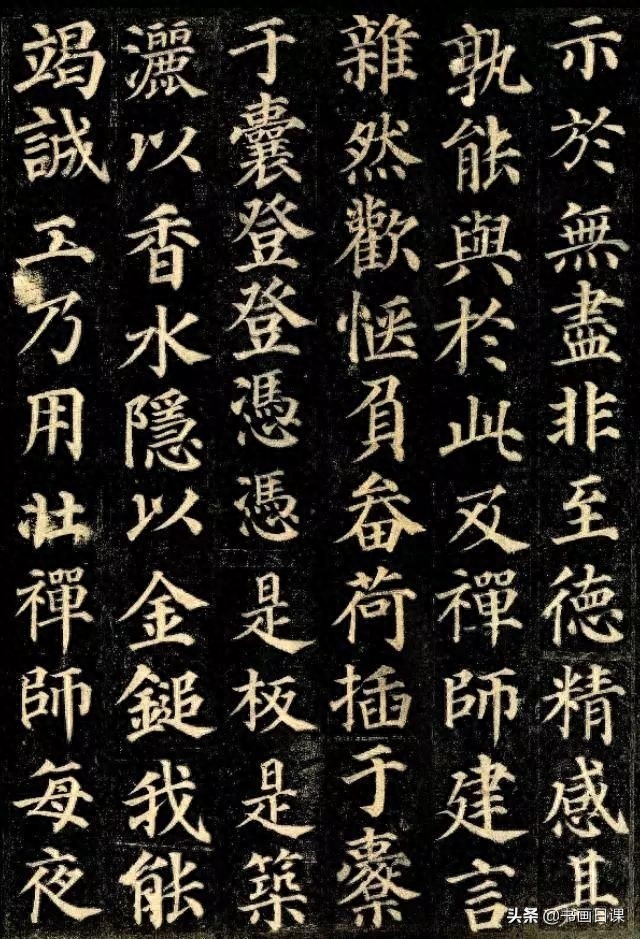 示於無盡非至德精感其
孰能與於此及禪師建言
雜然歡愜負畚荷插于橐
于囊登登憑憑是板是築
灑以香水隱以金鎚我能
竭誠工乃用壯禪師每夜
头条@书画日课